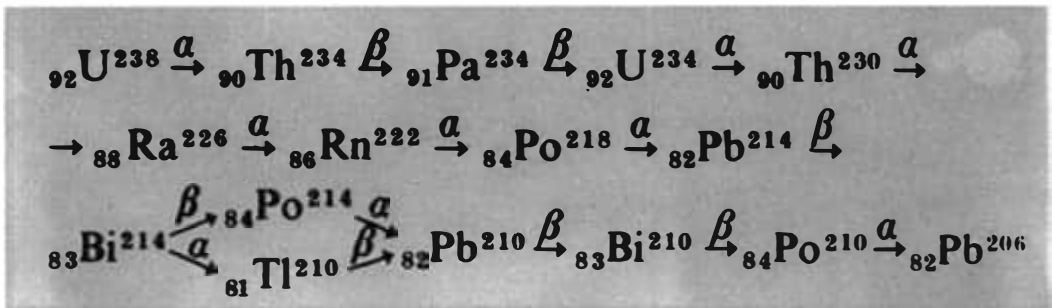 ₉₂U²³⁸ α→ ₉₀Th²³⁴ β→ ₉₁Pa²³⁴ β→ ₉₂U²³⁴ α→ ₉₀Th²³⁰ α→
→ ₈₈Ra²²⁶ α→ ₈₆Rn²²² α→ ₈₄Po²¹⁸ α→ ₈₂Pb²¹⁴ β→
β→ ₈₄Po²¹⁴ α→
₈₃Bi²¹⁴ α→ ₈₁Tl²¹⁰ β→ ₈₂Pb²¹⁰ β→ ₈₃Bi²¹⁰ β→ ₈₄Po²¹⁰ α→ ₈₂Pb²⁰⁶